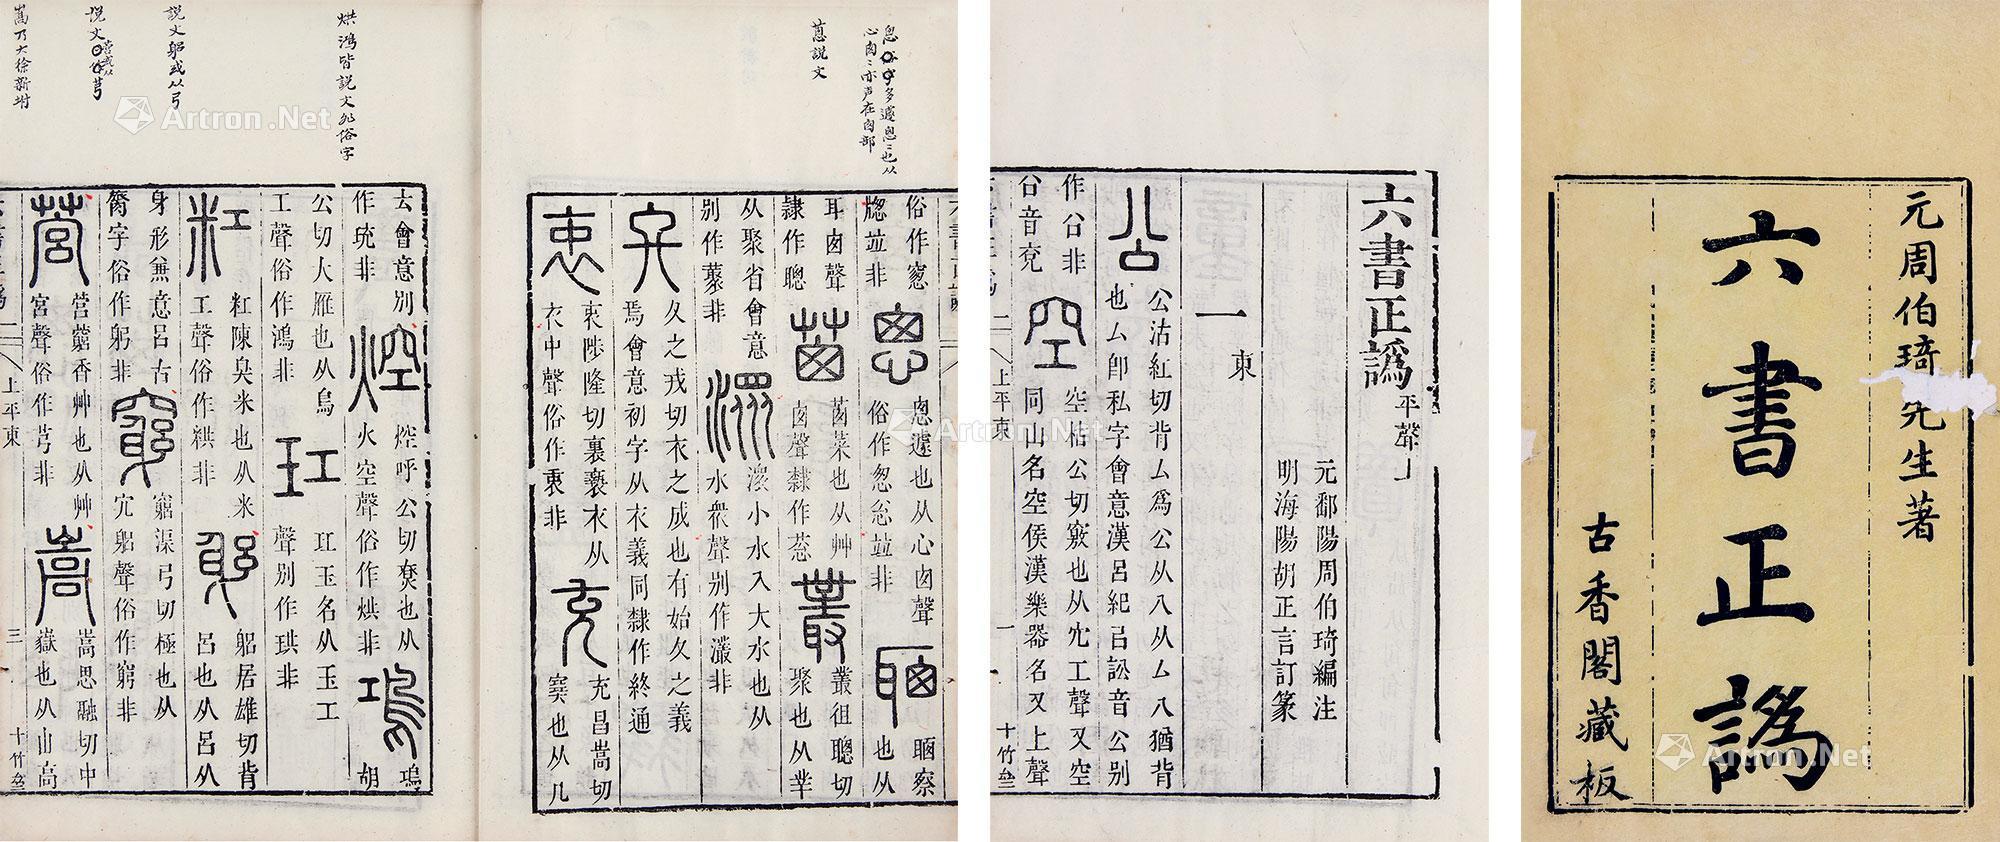 元周伯琦先生著
六書正譌
古香閣藏板
六書正譌 平聲上
元鄱陽周伯琦編注
明海陽胡正言訂篆
一東
公 公沽紅切背厶爲公从八从厶八猶背
也厶卽私字會意漢呂紀㠯訟音公別
作㕣非 空 空枯公切竅也从穴工聲又空
㕣音兗 同山名空侯漢樂器名又上聲
上平東 一 十竹齋
俗作窻
牎竝非 悤 悤遽也从心囪聲
俗作怱忩竝非 聰 聰察
也从
耳囪聲
隷作聰 蔥 蔥菜也从艸
囪聲隸作葱 叢 叢徂聰切
聚也从丵
从聚省會意
別作藂非 潨 潨小水入大水也从
水衆聲別作灇非
夂 夂之戎切衣之成也有始夂之義
焉會意初字从衣義同隸作終通
衷 衷陟隆切裏褻衣从
衣中聲俗作衷非 充 充昌嵩切
㚇也从儿
去會意別
作珫非 烘 烘呼公切尞也从
火空聲俗作烘非 鳿 鳿胡
公切大雁也从鳥
工聲俗作鴻非 玒 玒玉名从玉工
聲別作珙非
粠 粠陳臭米也从米
工聲俗作粠非 躳 躳居雄切背
呂也从呂从
身形兼意呂古
膂字俗作躬非 竆 竆渠弓切極也从
穴躳聲俗作窮非
营 营藭香艸也从艸
宮聲俗作芎非 嵩 嵩思融切中
嶽也从山高
上平東 三 十竹齋
蔥説文
烘鴻皆説文非俗字
説文躳或从弓
説文营或从弓
嵩乃大徐新坿
Artron.Net
Artron.Net
Artron.Net